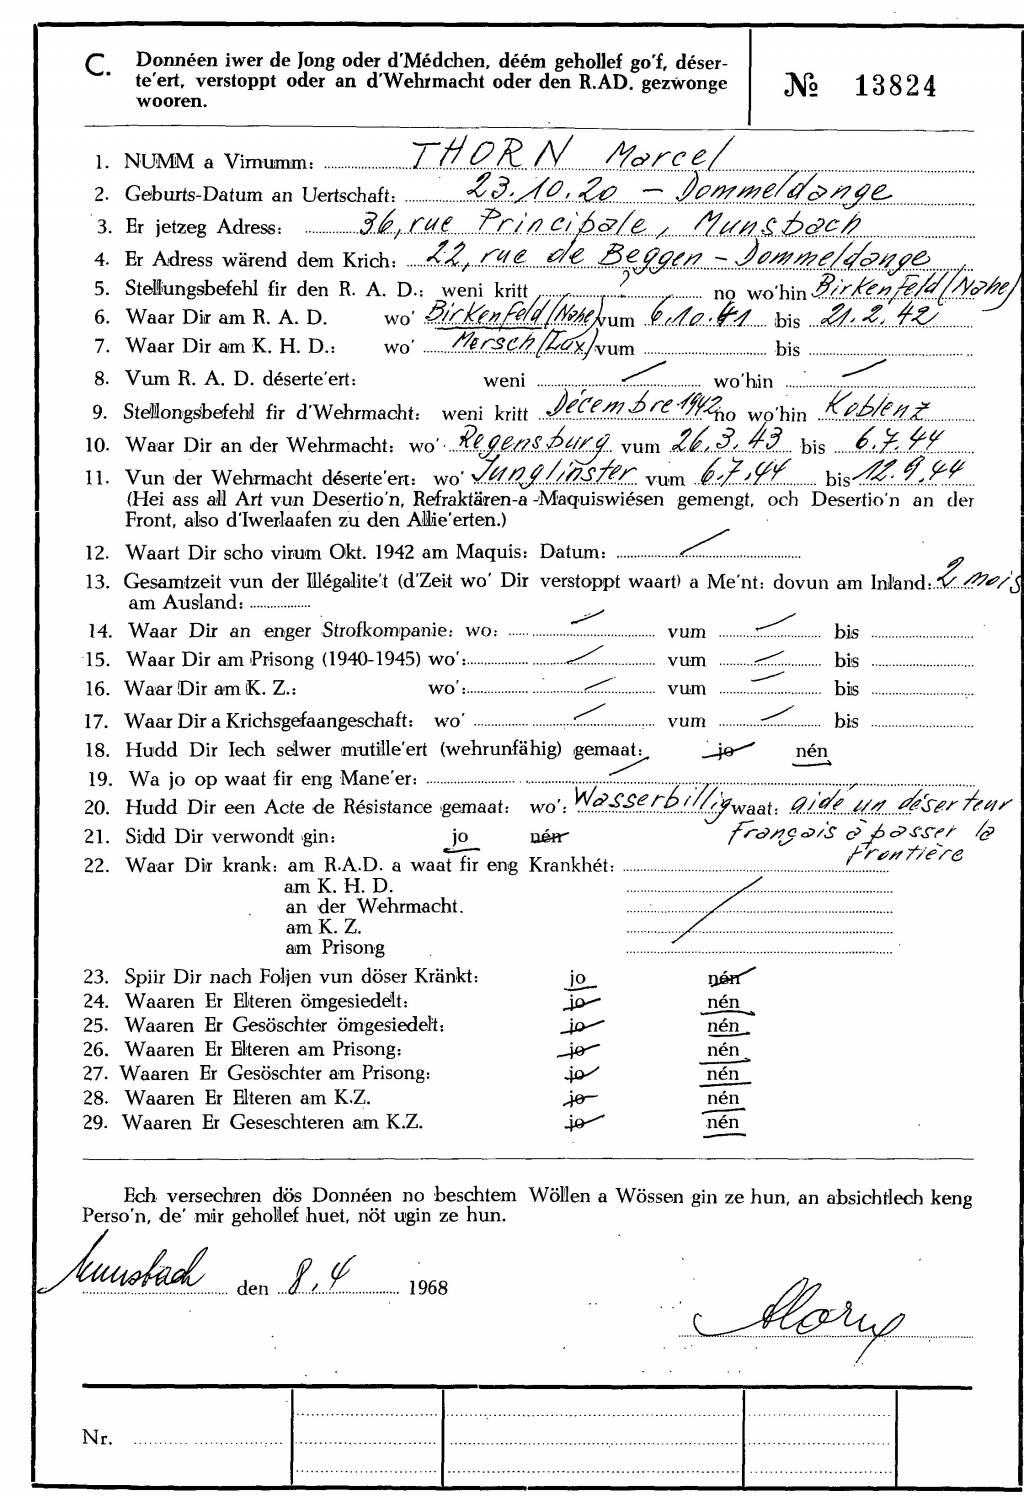 C. Donnéen iwer de Jong oder d'Médchen, déém gehollef go'f, déser-
te'ert, verstoppt oder an d'Wehrmacht oder den R.AD. gezwonge
wooren.
№ 13824
1. NUMM a Virnumm: THORN Marcel
2. Geburts-Datum an Uertschaft: 23.10.20 – Dommeldange
3. Er jetzeg Adress: 36, rue Principale, Munsbach
4. Er Adress wärend dem Krich: 22, rue de Beggen – Dommeldange
5. Stellungsbefehl fir den R. A. D.: weni kritt ? no wo'hin Birkenfeld (Nahe)
6. Waar Dir am R. A. D. wo' Birkenfeld (Nahe) vum 6.10.41 bis 21.2.42
7. Waar Dir am K. H. D.: wo' Mersch (Lux) vum bis
8. Vum R. A. D. déserte'ert: weni / wo'hin /
9. Stellongsbefehl fir d'Wehrmacht: weni kritt Décembre 1942 no wo'hin Koblenz
10. Waar Dir an der Wehrmacht: wo' Regensburg vum 26.3.43 bis 6.7.44
11. Vun der Wehrmacht déserte'ert: wo' Junglinster vum 6.7.44 bis 12.9.44
(Hei ass all Art vun Desertio'n, Refraktären-a -Maquiswiésen gemengt, och Desertio'n an der
Front, also d'Iwerlaafen zu den Allie'erten.)
12. Waart Dir scho virum Okt. 1942 am Maquis: Datum: /
13. Gesamtzeit vun der Illégalite't (d'Zeit wo' Dir verstoppt waart) a Me'nt: dovun am Inland: 2 mois
am Ausland:
14. Waar Dir an enger Strofkompanie: wo: / vum / bis
15. Waar Dir am Prisong (1940-1945) wo': / vum / bis
16. Waar Dir am K. Z.: wo': / vum / bis
17. Waar Dir a Krichsgefaangeschaft: wo' / vum / bis
18. Hudd Dir Iech selwer mutille'ert (wehrunfähig) gemaat: jo nén
19. Wa jo op waat fir eng Mane'er: /
20. Hudd Dir een Acte de Résistance gemaat: wo': Wasserbillig waat: aidé un déserteur
21. Sidd Dir verwondt gin: jo nén Français à passer la
frontière
22. Waar Dir krank: am R.A.D. a waat fir eng Krankhét:
am K. H. D.
an der Wehrmacht. /
am K. Z.
am Prisong
23. Spiir Dir nach Foljen vun döser Kränkt: jo nén
24. Waaren Er Elteren ömgesiedelt: jo nén
25. Waaren Er Gesöschter ömgesiedelt: jo nén
26. Waaren Er Elteren am Prisong: jo nén
27. Waaren Er Gesöschter am Prisong: jo nén
28. Waaren Er Elteren am K.Z. jo nén
29. Waaren Er Geseschteren am K.Z. jo nén
Ech versechren dös Donnéen no beschtem Wöllen a Wössen gin ze hun, an absichtlech keng
Perso'n, de' mir gehollef huet, nöt ugin ze hun.
Munsbach den 8.4 1968
Nr.